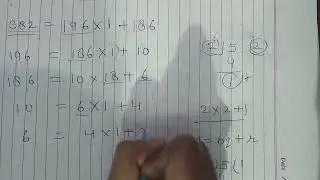 382 = 196 × 1 + 186
196 = 186 × 1 + 10
186 = 10 × 18 + 6
10 = 6 × 1 + 4
6 = 4 × 1 + 2
2 × 2 + 1